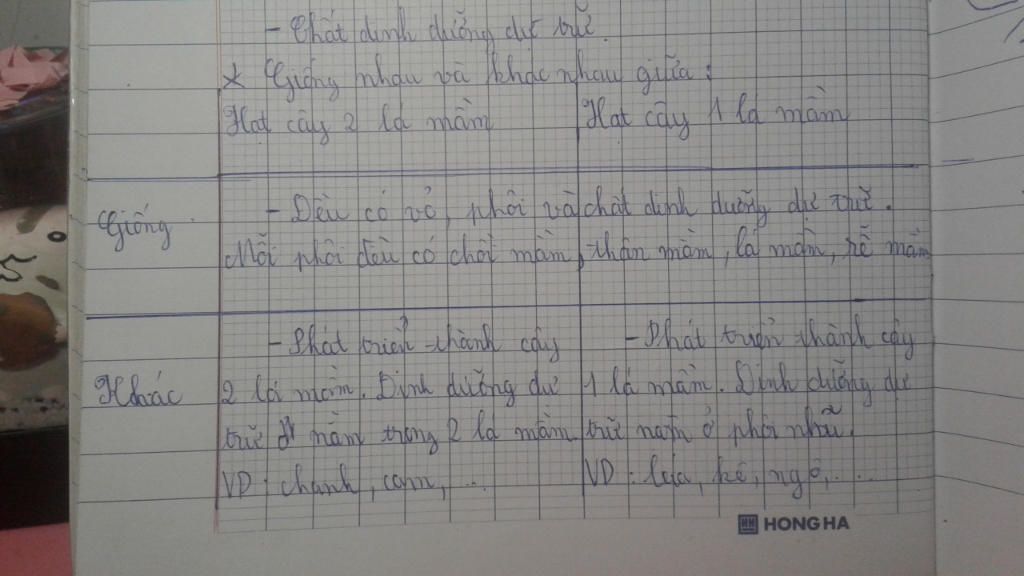 - Chất dinh dưỡng dự trữ.
* Giống nhau và khác nhau giữa:
Hạt cây 2 lá mầm Hạt cây 1 lá mầm
- Đều có vỏ, phôi và chất dinh dưỡng dự trữ.
Giống
Mỗi phôi đều có chồi mầm, thân mầm, lá mầm, rễ mầm
- Phát triển thành cây - Phát triển thành cây
Khác 2 lá mầm. Dinh dưỡng dự 1 lá mầm. Dinh dưỡng dự
trữ nằm trong 2 lá mầm trữ nằm ở phôi nhũ.
VD: chanh, cam,... VD: lúa, kê, ngô,...
HONG HA
5